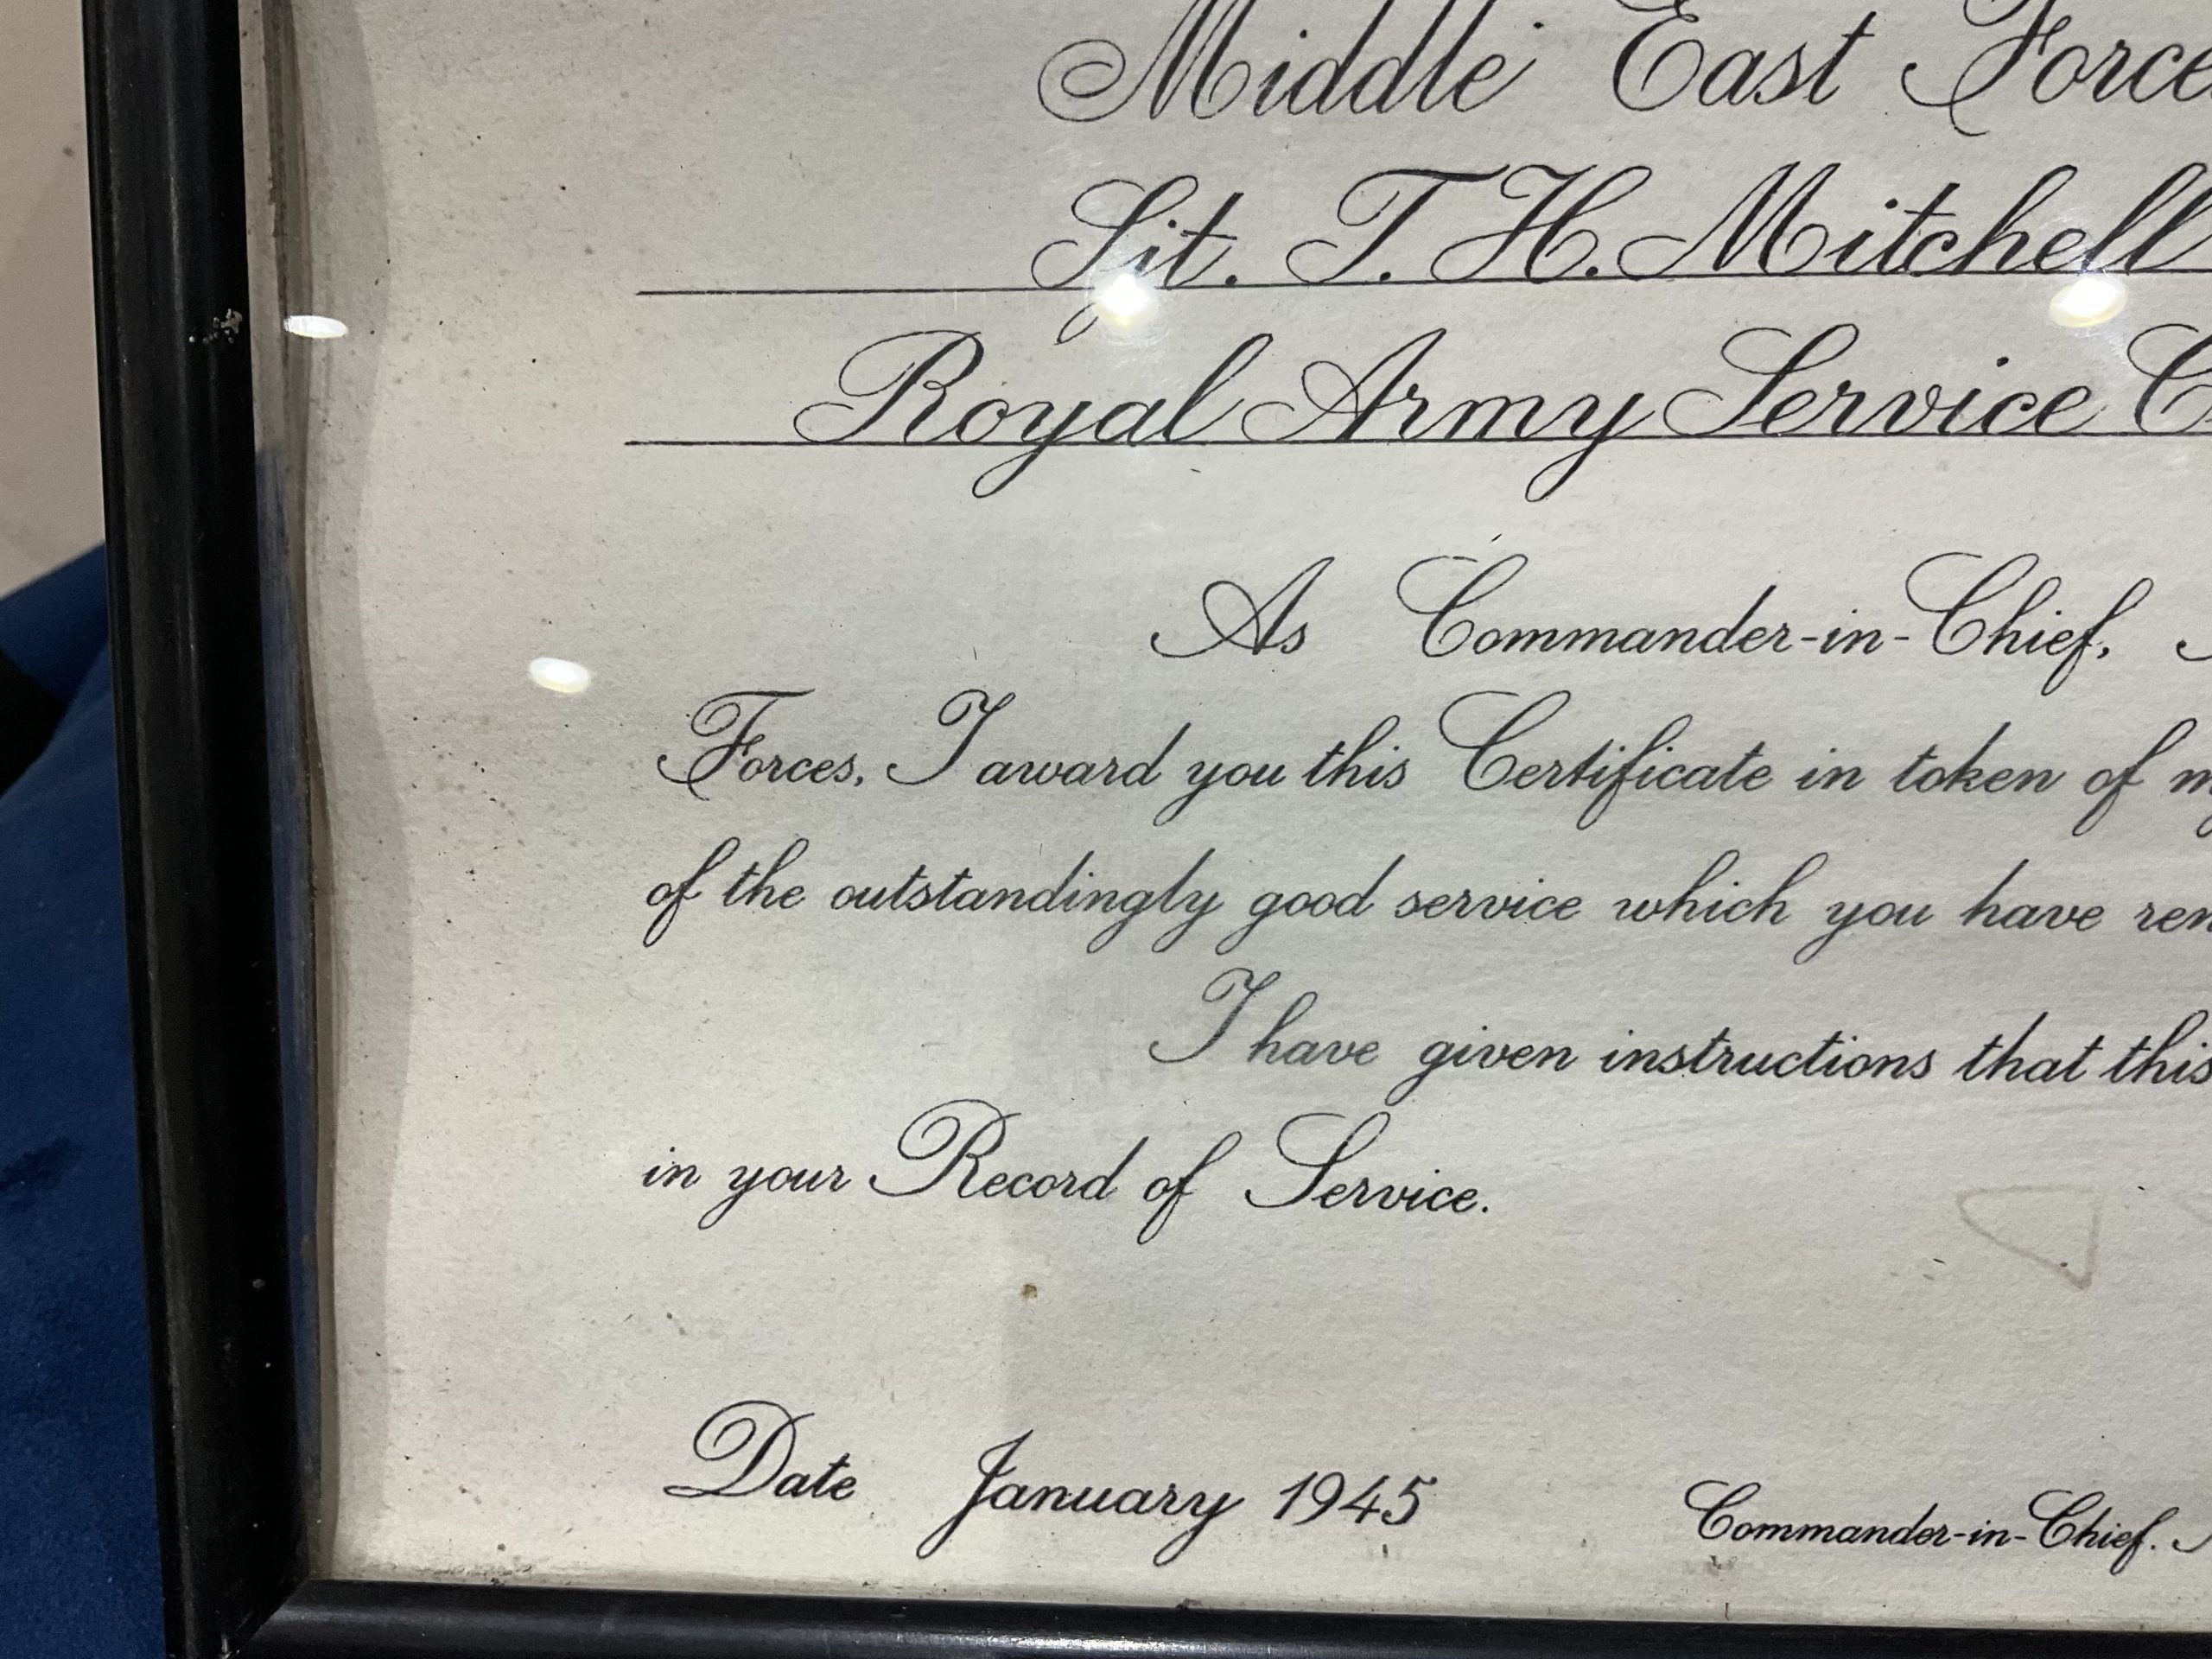 Middle East Forces
Sjt. T. H. Mitchell
Royal Army Service C
As Commander-in-Chief,
Forces, I award you this Certificate in token of my
of the outstandingly good service which you have ren
I have given instructions that this
in your Record of Service.
Date January 1945
Commander-in-Chief.